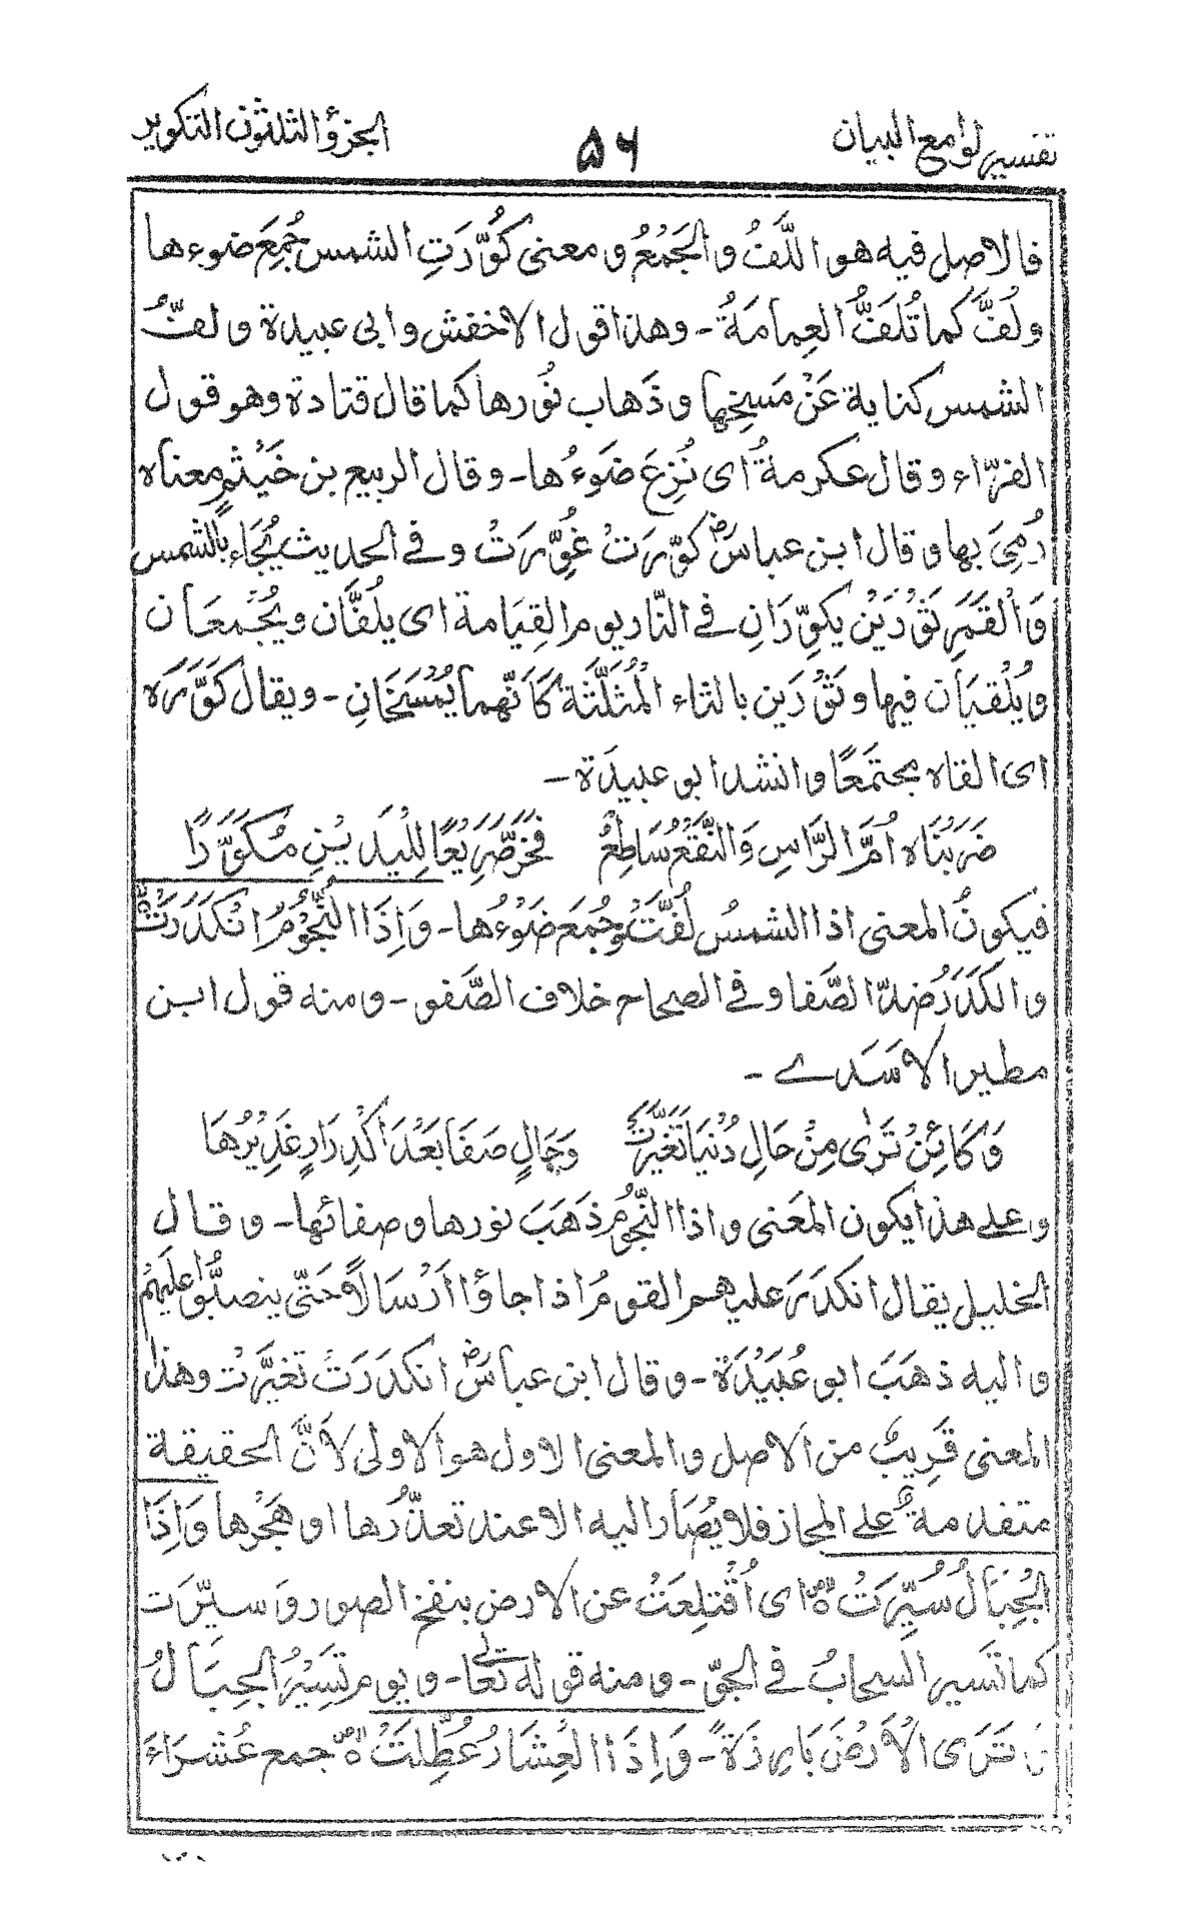 تفسير لوامع البيان ۵۶ الجزؤ الثلثون التكوير
فالاصل فيه هو اللَّفُ والجَمْعُ ومعنى كُوِّرَتِ الشمس جُمِعَ ضوءها
ولُفَّ كما تُلَفُّ العِمامَةُ - وهذا قول الاخفش وابى عبيدة ولفّ
الشمس كناية عَنْ مَسخِها وذَهاب نُورها كما قال قتادة وهو قول
الفرّاء وقال عكرمةُ اى نُزِعَ ضَوءُها - وقال الربيع بن خَيْثم معناه
رُمِىَ بها وقال ابن عباسؓ كوّرَتْ غُوِّرَتْ وفى الحديث يُجَاء بالشمس
وَالْقَمَرِ ثَوْرَيْن يكوِّرَانِ فى النّار يوم القِيَامة اى يلفَّان ويُجْمعَان
ويُلْقيَان فيها وثَوْرَين بالثاء المُثلَّثة كَاَنّهما يُمْسَخَانِ - ويقال كَوَّرَه
اى القاه مجتمَعًا وانشد ابو عبيدَة -
ضَرَبْنَاه اُمَّ الرَّاسِ وَالنَّقْعُ سَاطِعٌ فَخَرَّ صَرِيْعًا لِلْيَدَيْنِ مُكَوَّرًا
فيكونُ المعنى اذا الشمسُ لُفَّتْ وجُمعَ ضَوْءُها - وَاِذَا النُّجُوْمُ انْكَدَرَتْ
والكَدَرُ ضدّ الصَّفا وفى الصحاح خلاف الصَّفو - ومنه قول ابن
مطير الاسَدے -
وَكَائِنْ تَرٰى مِنْ حَالِ دُنْيَا تَغَيَّرَتْ وَحَالٍ صَفَا بَعْدَ اكْدِرَارٍ غَدِيْرُهَا
وعلى هذا يكون المَعْنى واذا النّجُومُ ذَهَبَ نورها وصفائها - وقال
الخليل يقال انكدَرَ عليهم القومُ اذا جاؤا اَرْسَالًا حَتّى ينصبُّوا عليهِمْ
واليه ذهَبَ ابو عُبَيْدَة - وقال ابن عباسؓ انكدَرَتْ تغيَّرت وهذا
المعنى قَرِيبٌ من الاصل والمعنى الاول هو الاولى لاَنَّ الحقيقة
متقدمةٌ على المجاز فلا يُصَار اليه الا عند تعذُّرها او هَجْرِها وَاِذَا
الْجِبَالُ سُيِّرَتْ اى اُقْتلِعَتْ عن الارض بنفخ الصور وسيّرت
كما تَسير السحابُ فى الجوّ - ومنه قوله تعالى - ويوم تَسِيْرُ الجِبَالُ
تَرَى الْاَرْضَ بَارِزَةً - وَاِذَا الْعِشَارُ عُطِّلَتْ جمع عُشَرَاءَ